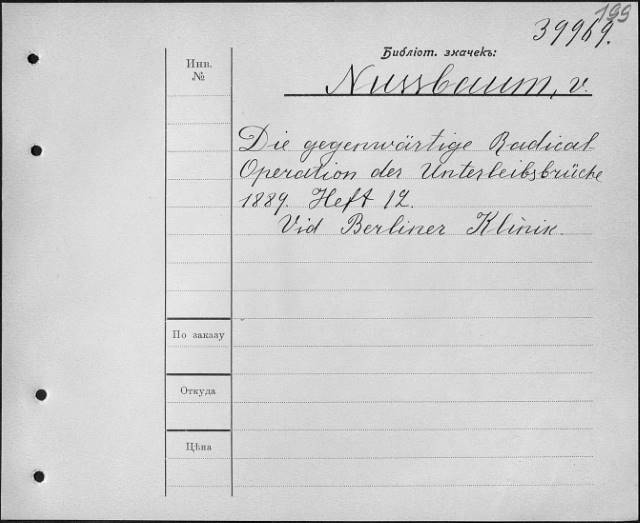 199
39969.
Библіот. значекъ:
Инв.
№
Nussbaum, v.
Die gegenwärtige Radical-
Operation der Unterleibsbrüche
1889. Heft 12.
Vid Berliner Klinik.
По заказу
Откуда
Цѣна